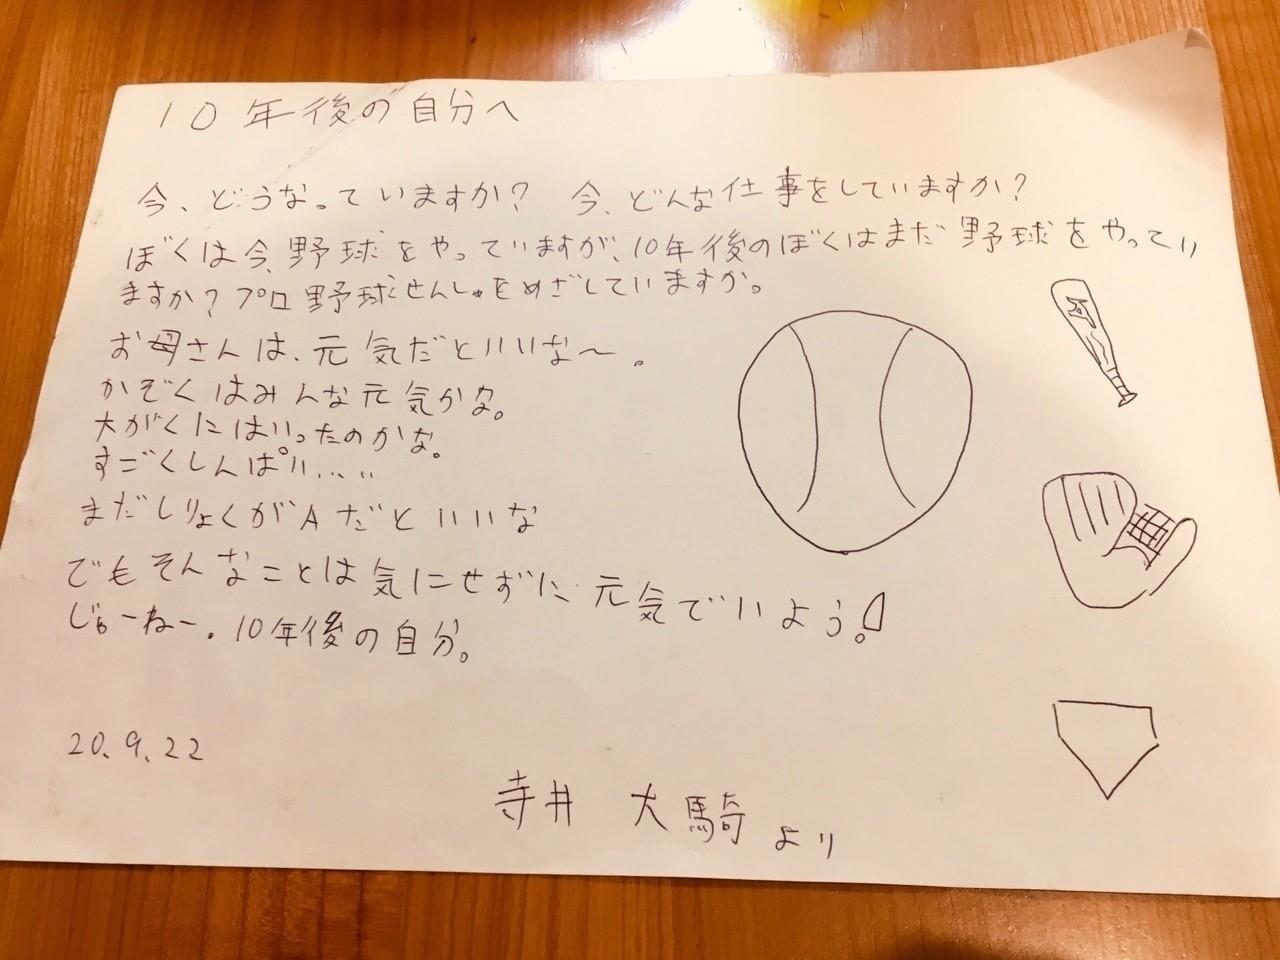 10年後の自分へ
今、どうなっていますか? 今、どんな仕事をしていますか?
ぼくは今、野球をやっていますが、10年後のぼくはまだ野球をやってい
ますか?プロ野球せんしゅをめざしていますか。
お母さんは、元気だといいな〜。
かぞくはみんな元気かな。
大がくにはいったのかな。
すごくしんぱい.....
まだしりょくがAだといいな
でもそんなことは気にせずに元気でいよう!
じゃーねー。10年後の自分。
20.9.22
寺井 大騎より